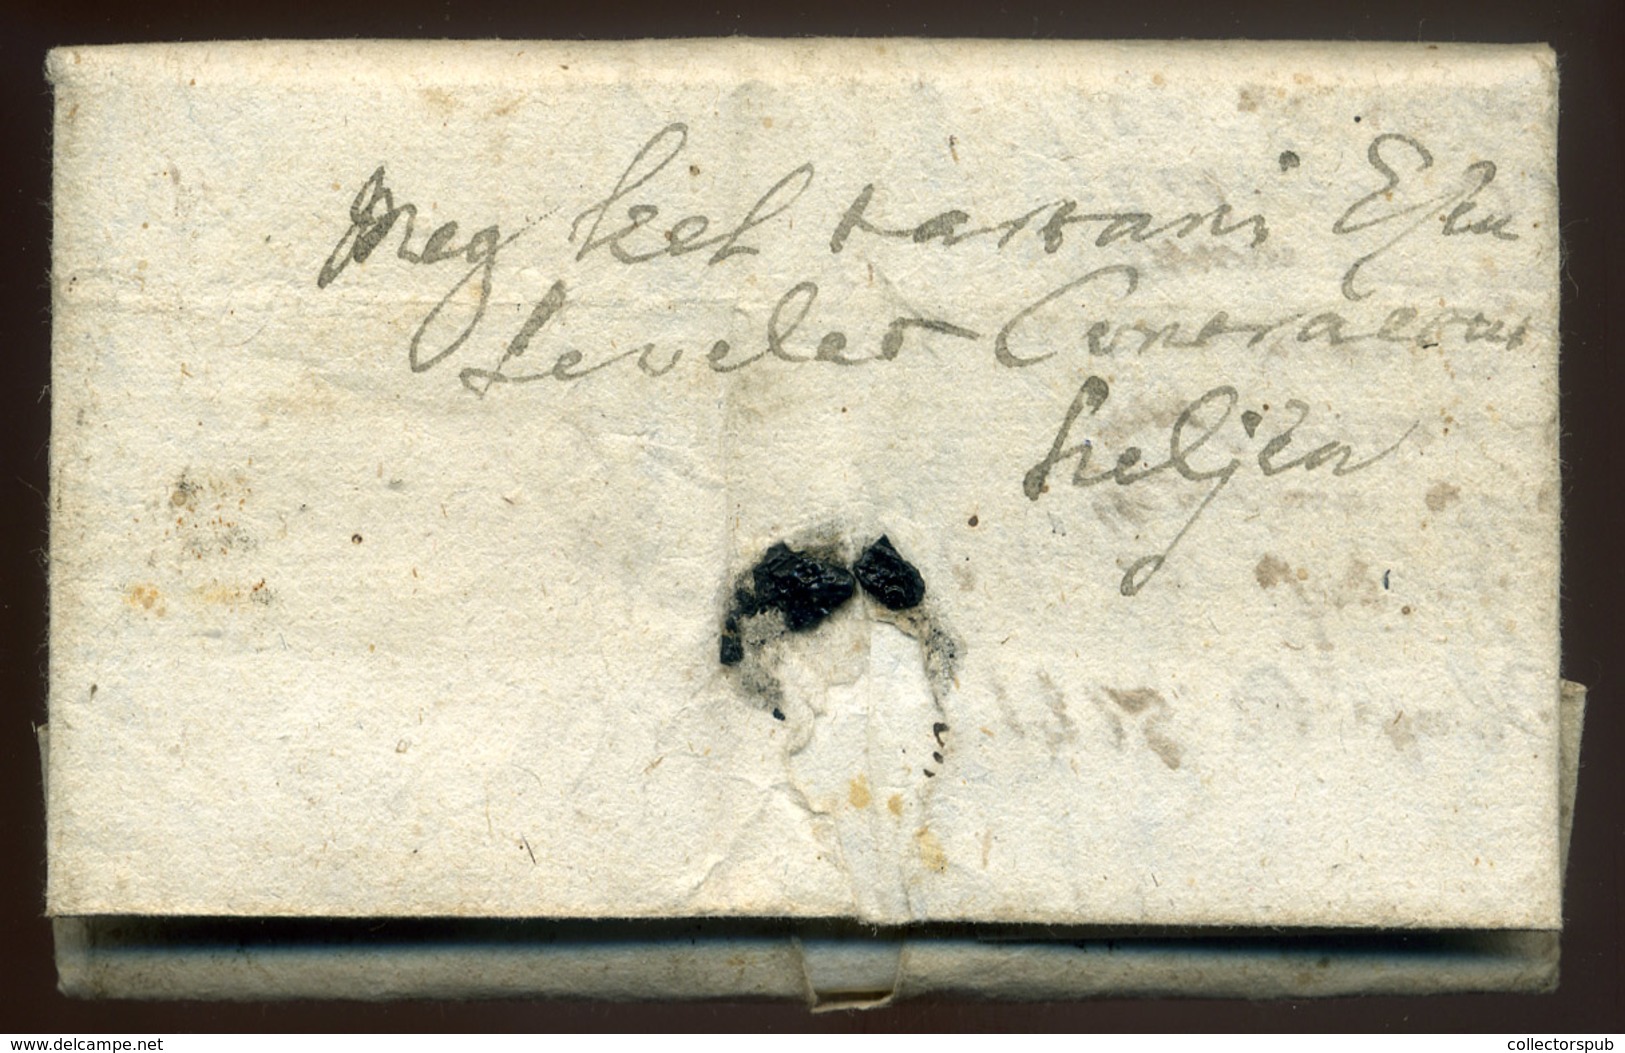 Meg kel tartani Ezen
Levelet Contractus
helyen
www.delcampe.net
collectorspub